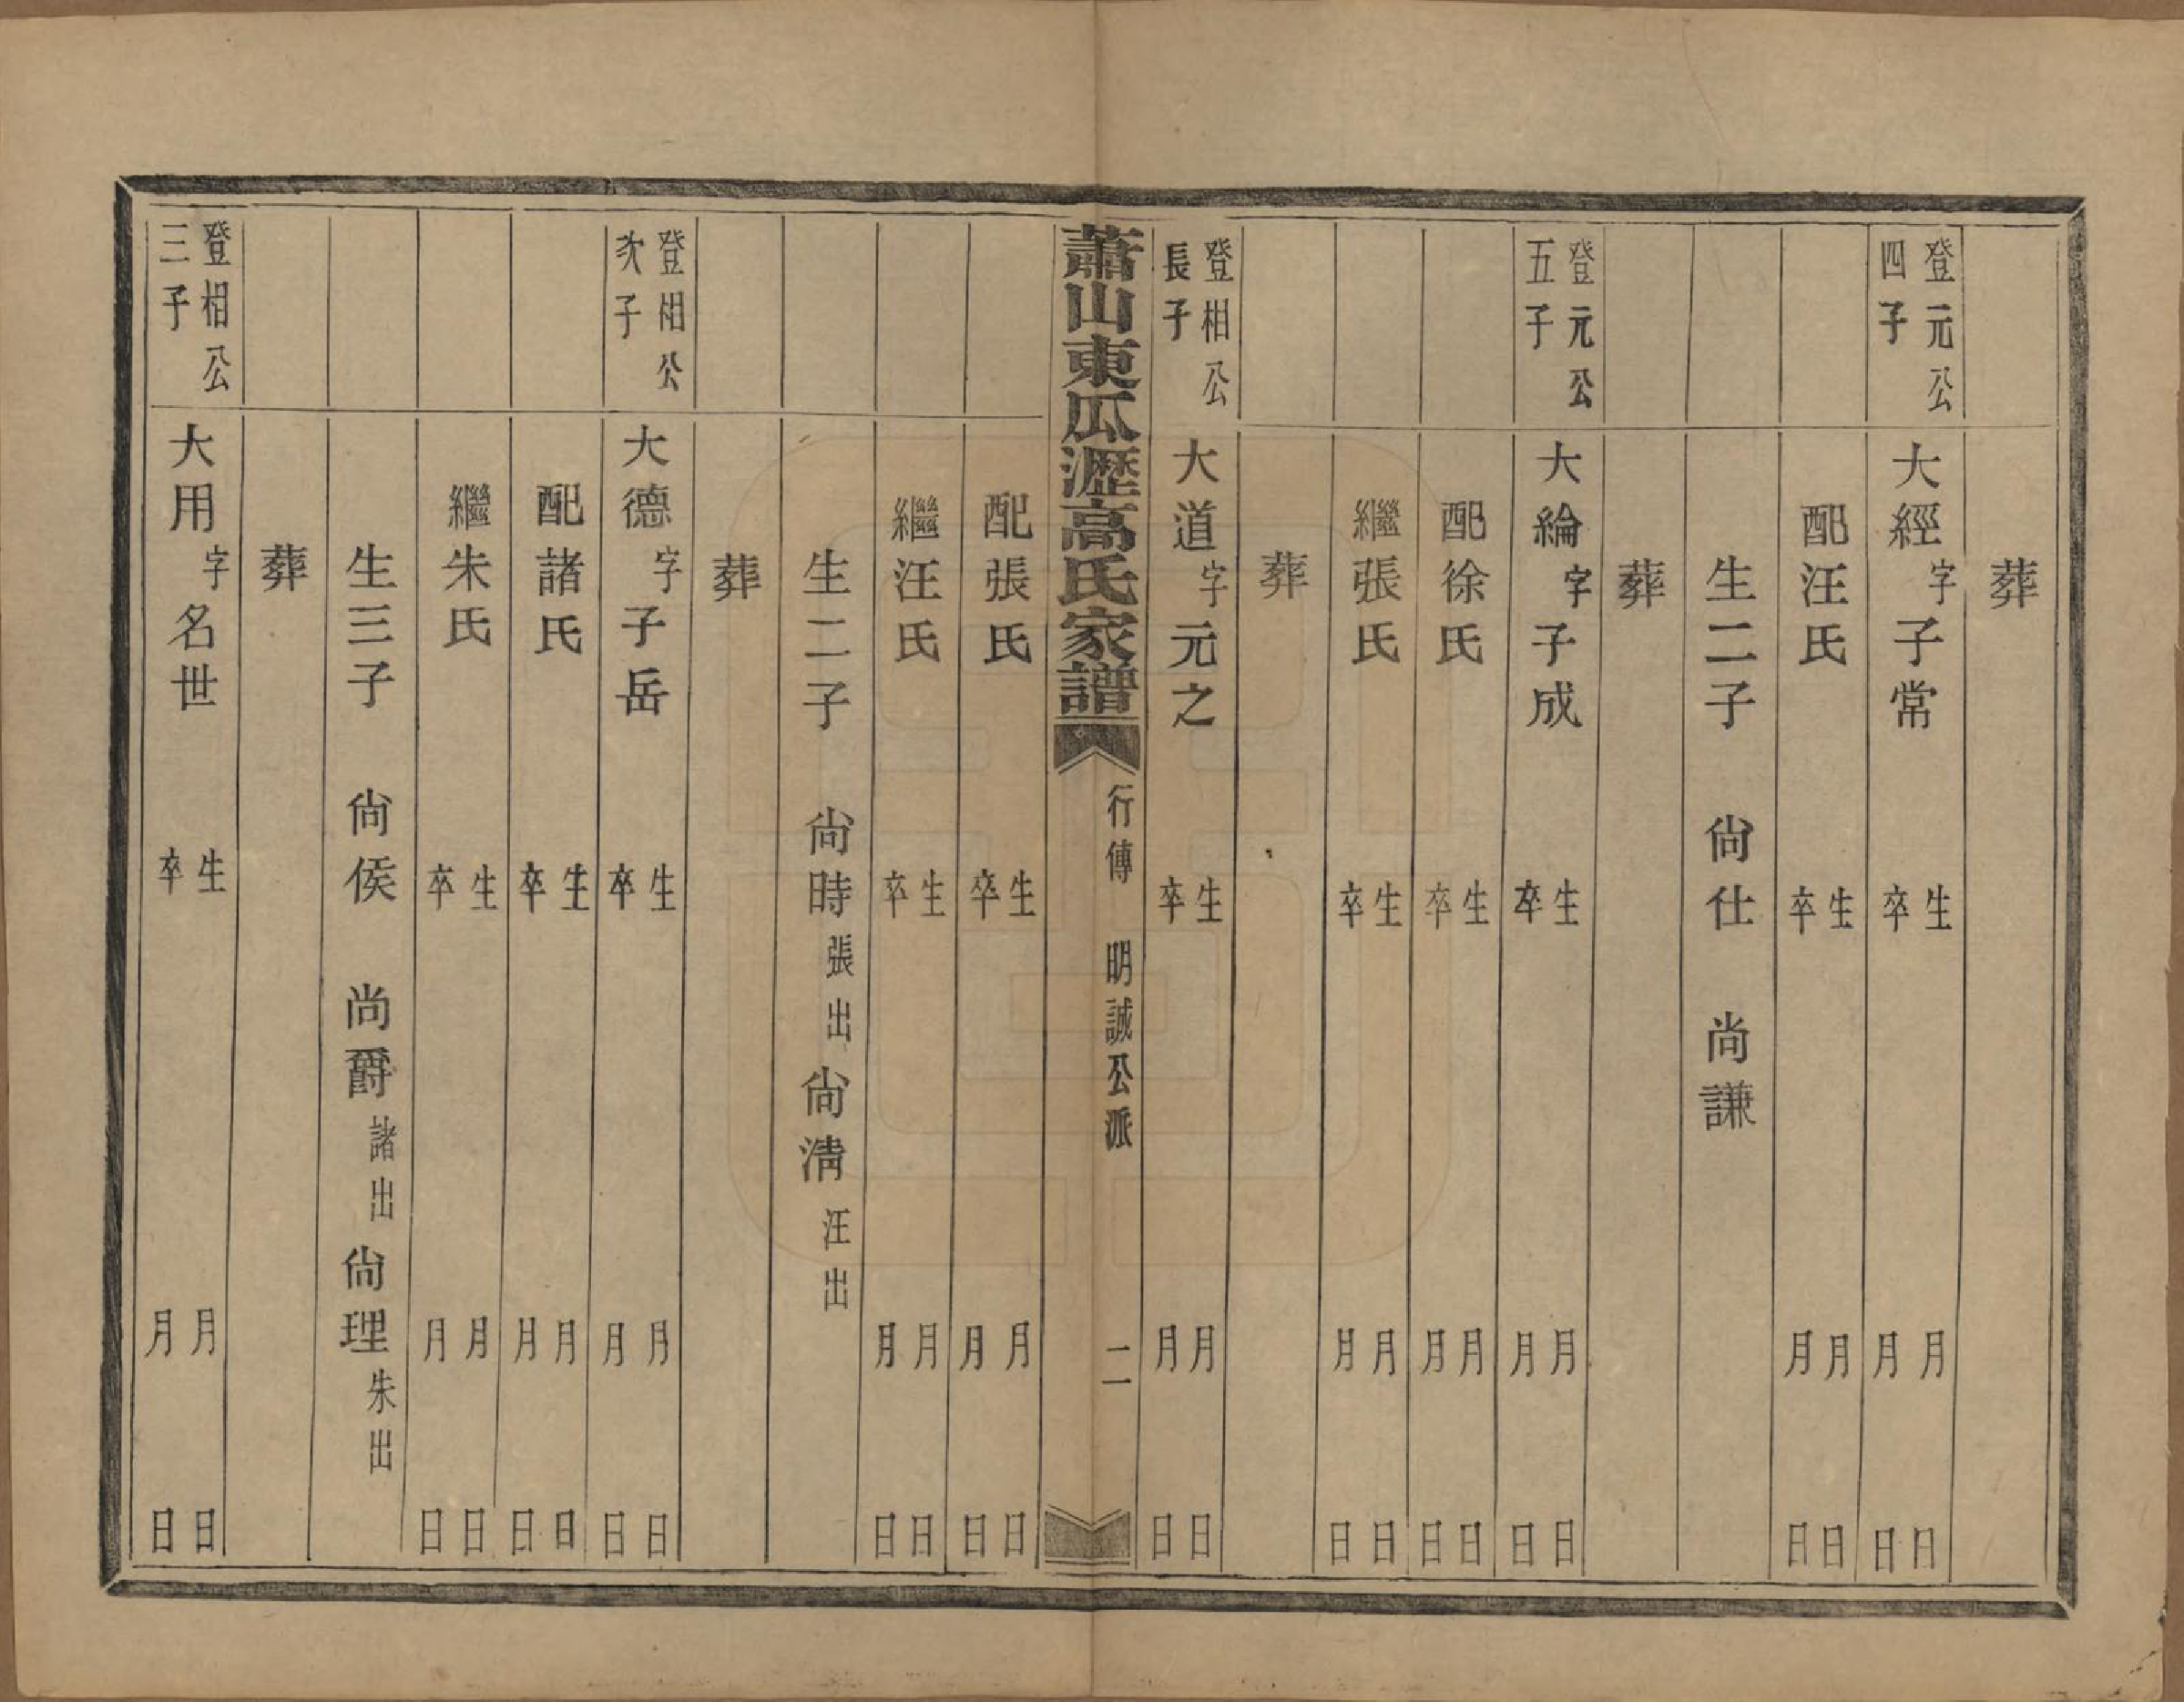 葬
登元公四子 大經字子常 生 月 日 卒 月 日
配汪氏 生 月 日 卒 月 日
生二子 尙仕 尙謙
葬
登元公五子 大綸字子成 生 月 日 卒 月 日
配徐氏 生 月 日 卒 月 日
繼張氏 生 月 日 卒 月 日
葬
登相公長子 大道字元之 生 月 日 卒 月 日
蕭山東瓜瀝高氏家譜 行傳 明誠公派 二
配張氏 生 月 日 卒 月 日
繼汪氏 生 月 日 卒 月 日
生二子 尙時張出 尙淸汪出
葬
登相公次子 大德字子岳 生 月 日 卒 月 日
配諸氏 生 月 日 卒 月 日
繼朱氏 生 月 日 卒 月 日
生三子 尙侯 尙爵諸出 尙理朱出
葬
登相公三子 大用字名世 生 月 日 卒 月 日